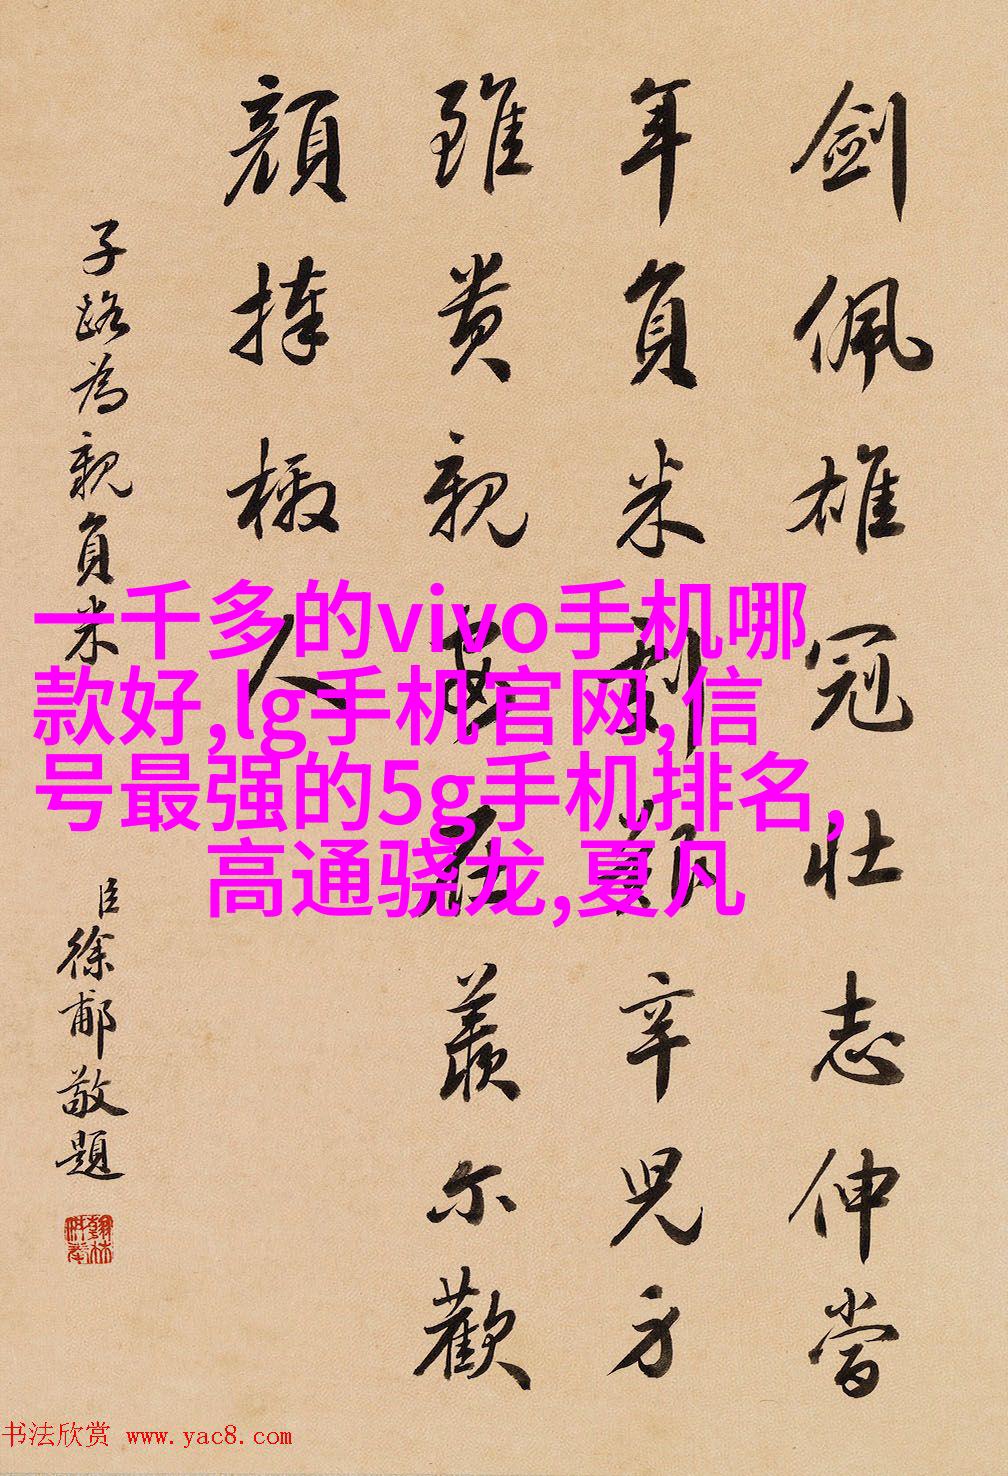 劍佩雄冠壯志伸當
年負米劇艱辛兒方
雖貴親安在羨爾歡
顏捧檄人
子路為親負米
臣徐郙敬題
一千多的vivo手机哪
款好,lg手机官网,信
号最强的5g手机排名,
高通骁龙,夏凡
书法欣赏 www.yac8.com